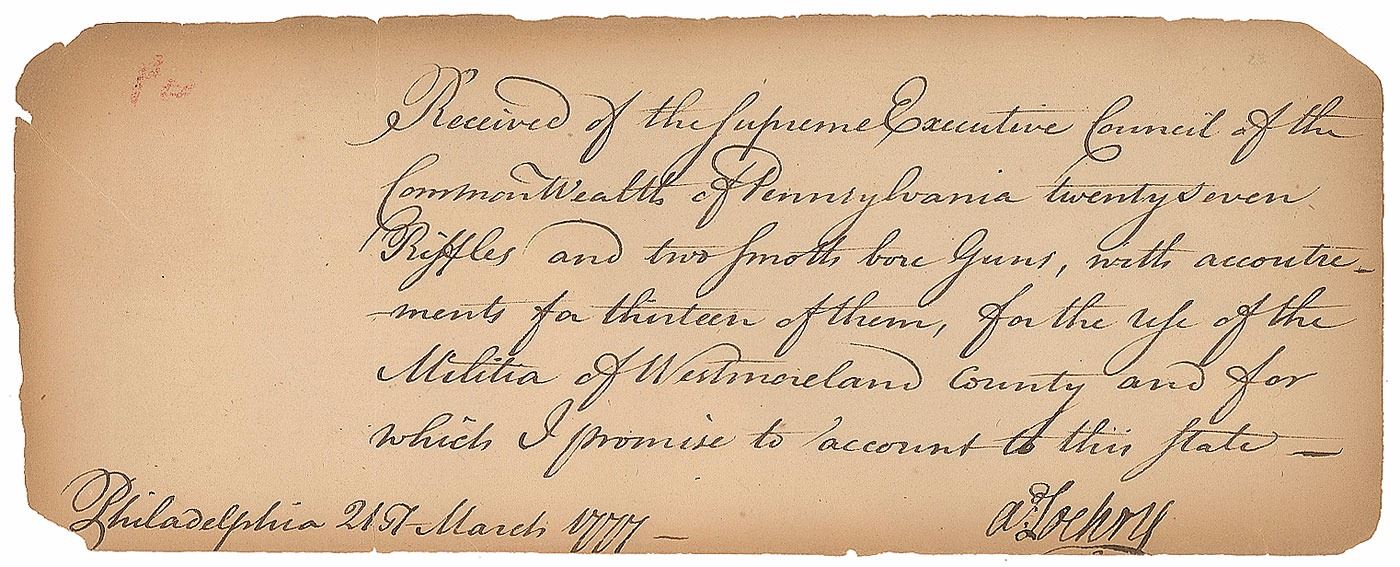 Received of the Supreme Executive Council of the
CommonWealth of Pennsylvania twenty seven
Riffles and two smoth bore Guns, with accoutre-
ments for thirteen of them, for the use of the
Militia of Westmoreland County and for
which I promise to account to this State —
Philadelphia 21st March 1777 —
A Lochry